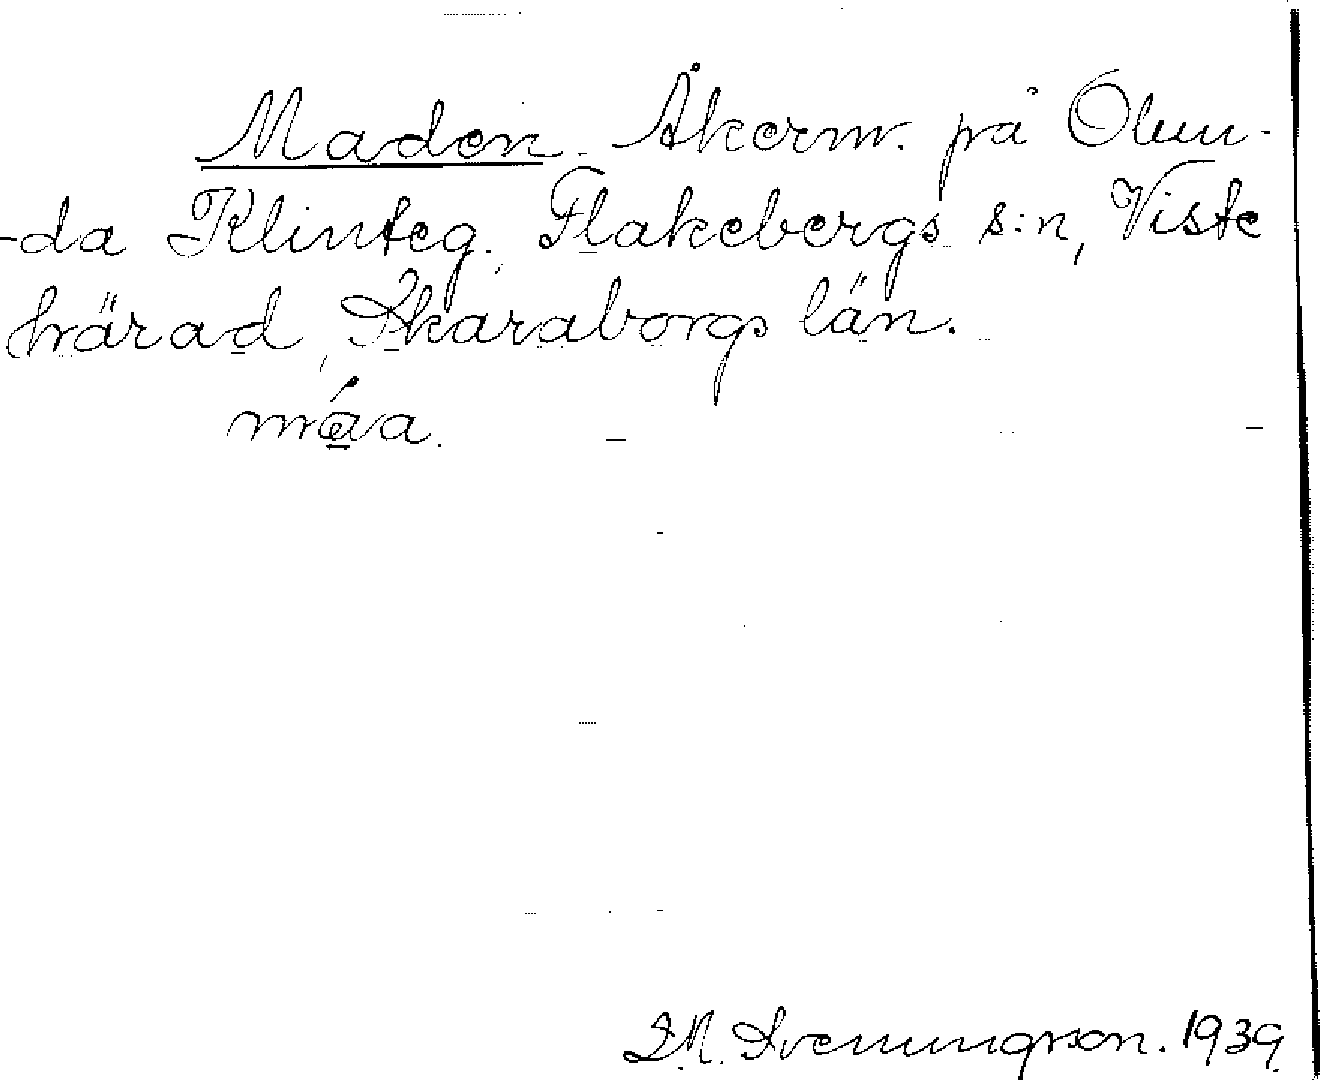 Maden. Åkerm. på Olun-
-da Klinteg., Flakebergs s:n, Viste
härad, Skaraborgs län.
máa.
D.M. Svenungson. 1939.